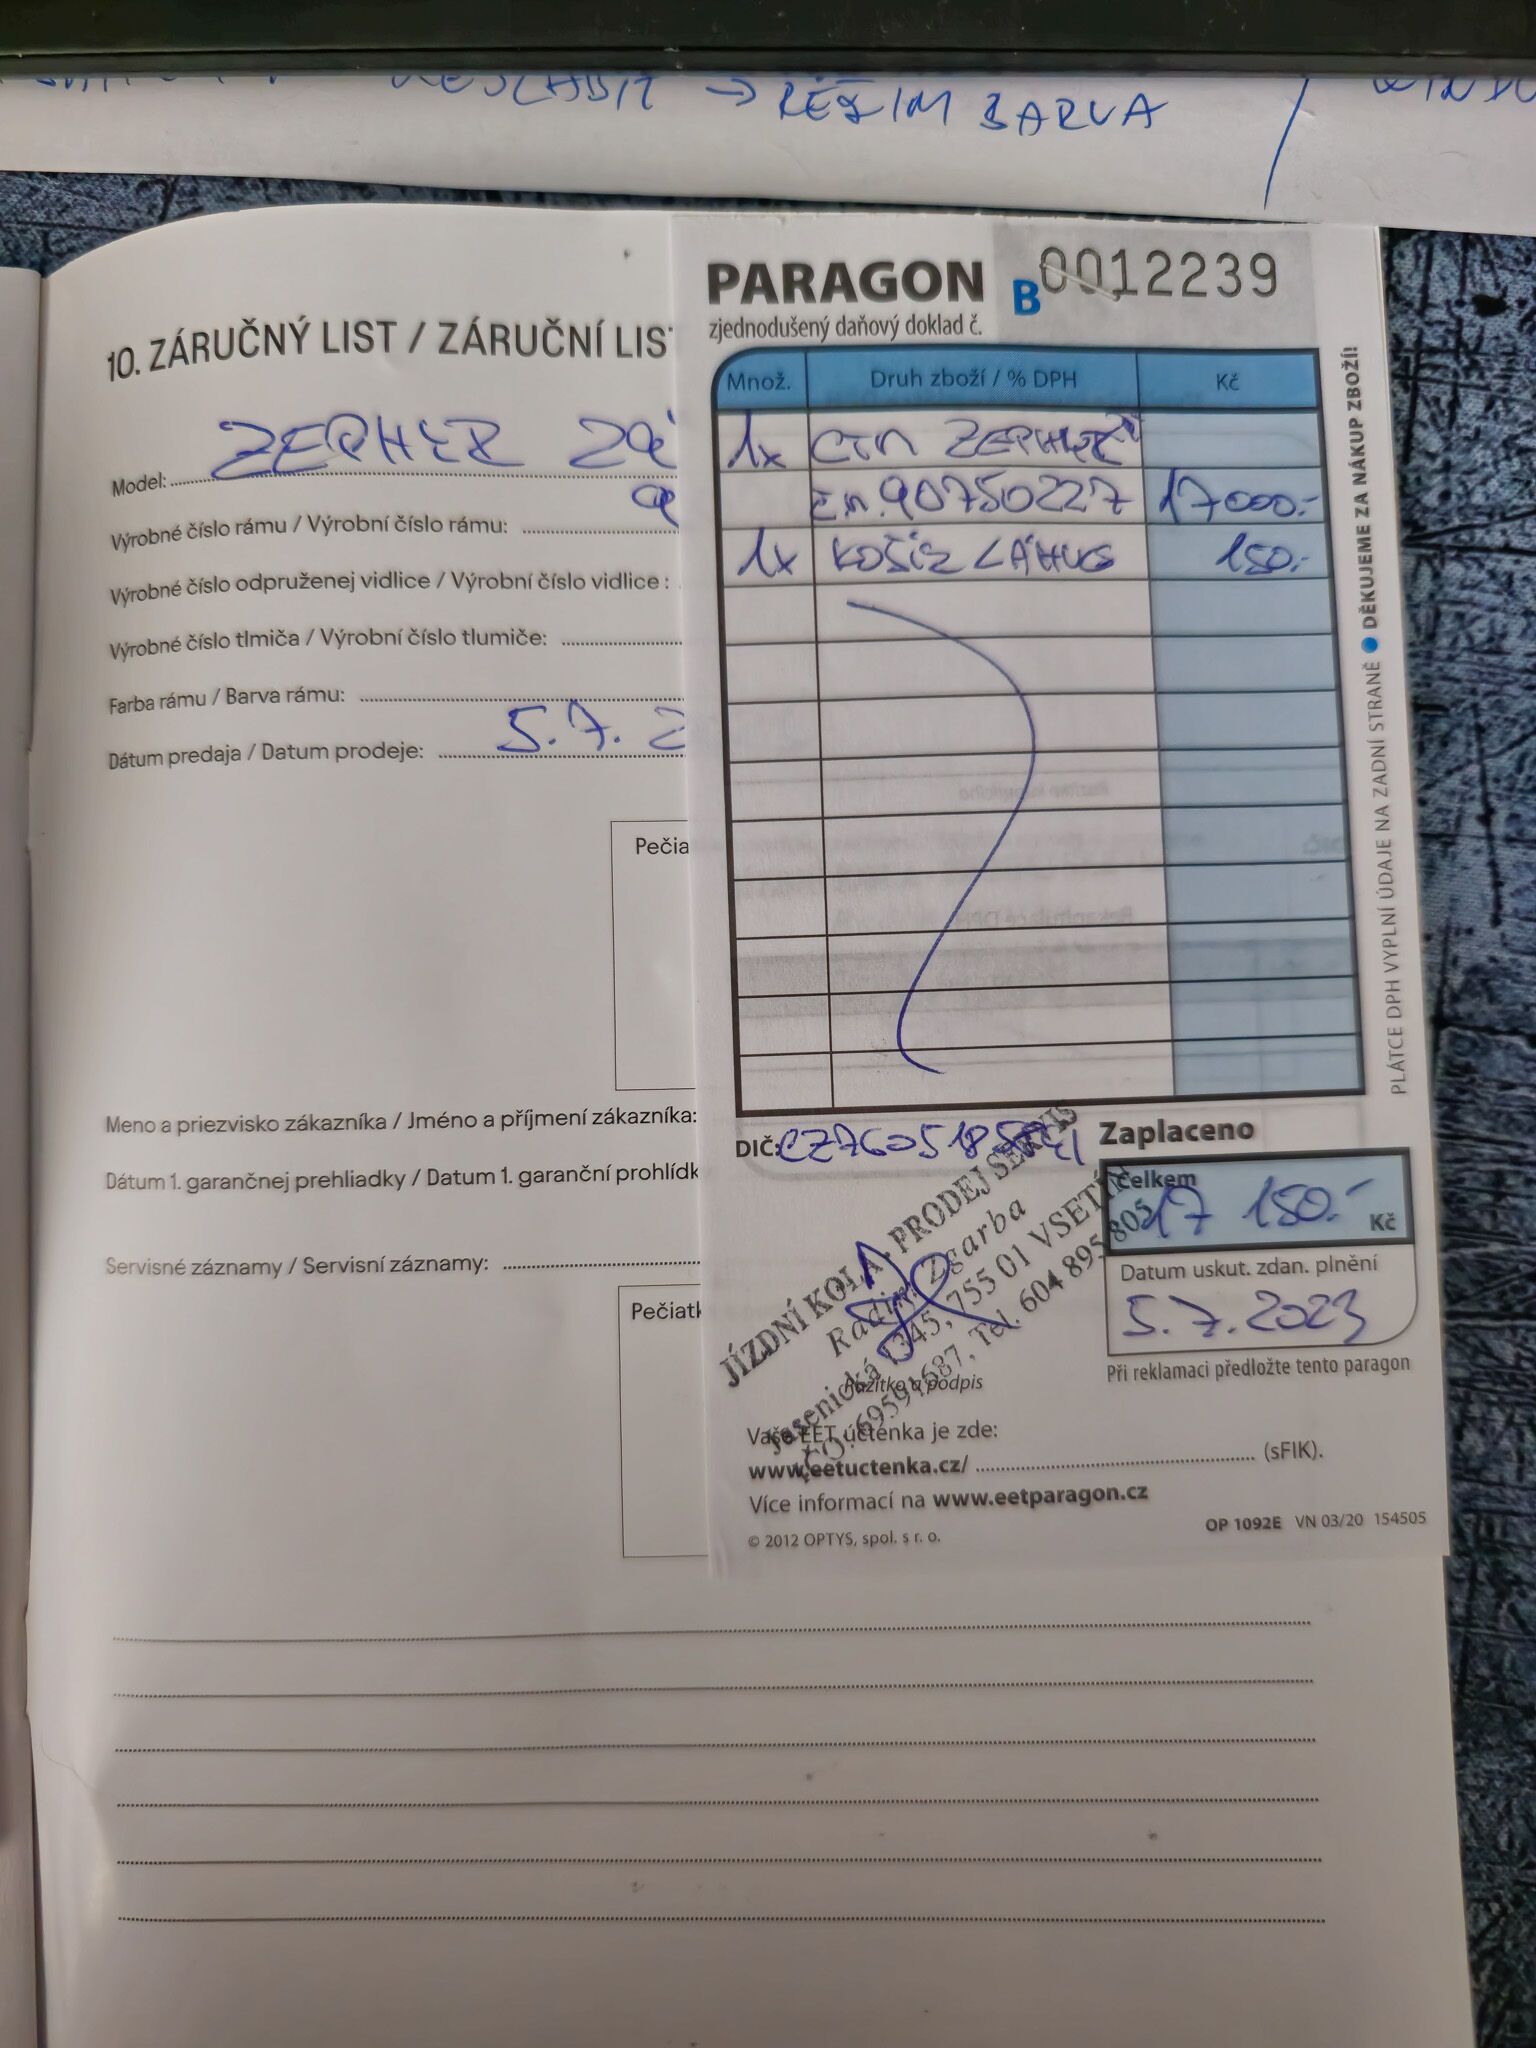 → REŽIM BARVA
10. ZÁRUČNÝ LIST / ZÁRUČNÍ LIS
Model: ZEPHYR 29"
Výrobné číslo rámu / Výrobní číslo rámu:
Výrobné číslo odpruženej vidlice / Výrobní číslo vidlice :
Výrobné číslo tlmiča / Výrobní číslo tlumiče:
Farba rámu / Barva rámu:
Dátum predaja / Datum prodeje: 5.7. 2
Pečia
Meno a priezvisko zákazníka / Jméno a příjmení zákazníka:
Dátum 1. garančnej prehliadky / Datum 1. garanční prohlídk
Servisné záznamy / Servisní záznamy:
Pečiatk
PARAGON B 0012239
zjednodušený daňový doklad č.
Množ. Druh zboží / % DPH Kč
1x CTM ZEPHYR
č.m. 90750227 17000.-
1x KOŠÍK LÁHVE 150.-
PLÁTCE DPH VYPLNÍ ÚDAJE NA ZADNÍ STRANĚ ● DĚKUJEME ZA NÁKUP ZBOŽÍ!
DIČ:
Zaplaceno
Celkem
17 150.- Kč
Datum uskut. zdan. plnění
5.7.2023
Při reklamaci předložte tento paragon
JÍZDNÍ KOLA PRODEJ SERVIS
Radim Zgarba
Jasenická 1345, 755 01 VSETÍN
IČO: 69591687, Tel. 604 895 805
Razítko a podpis
Vaše EET účtenka je zde:
www.eetuctenka.cz/ (sFIK).
Více informací na www.eetparagon.cz
© 2012 OPTYS, spol. s r. o.
OP 1092E VN 03/20 154505